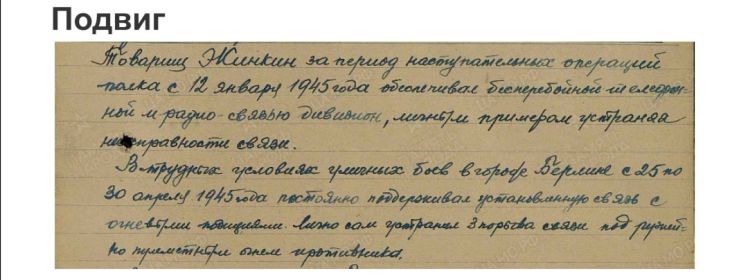 Подвиг
Товарищ Жинкин за период наступательных операций
полка с 12 января 1945 года обеспечивал бесперебойной телефон-
ной и радио-связью дивизион, личным примером устраняя
неисправности связи.
В трудных условиях уличных боев в городе Берлине с 25 по
30 апреля 1945 года постоянно поддерживал установленную связь с
огневыми позициями. Лично сам устранил 3 порыва связи под ружей-
но пулеметным огнем противника.